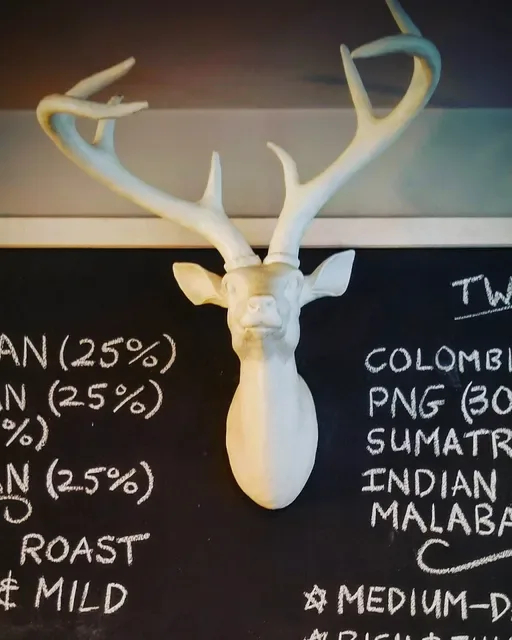 AN (25%)
AN (25%)
%)
AN (25%)
ROAST
& MILD
TW
COLOMBI
PNG (30
SUMATR
INDIAN
MALABA
☆ MEDIUM-D